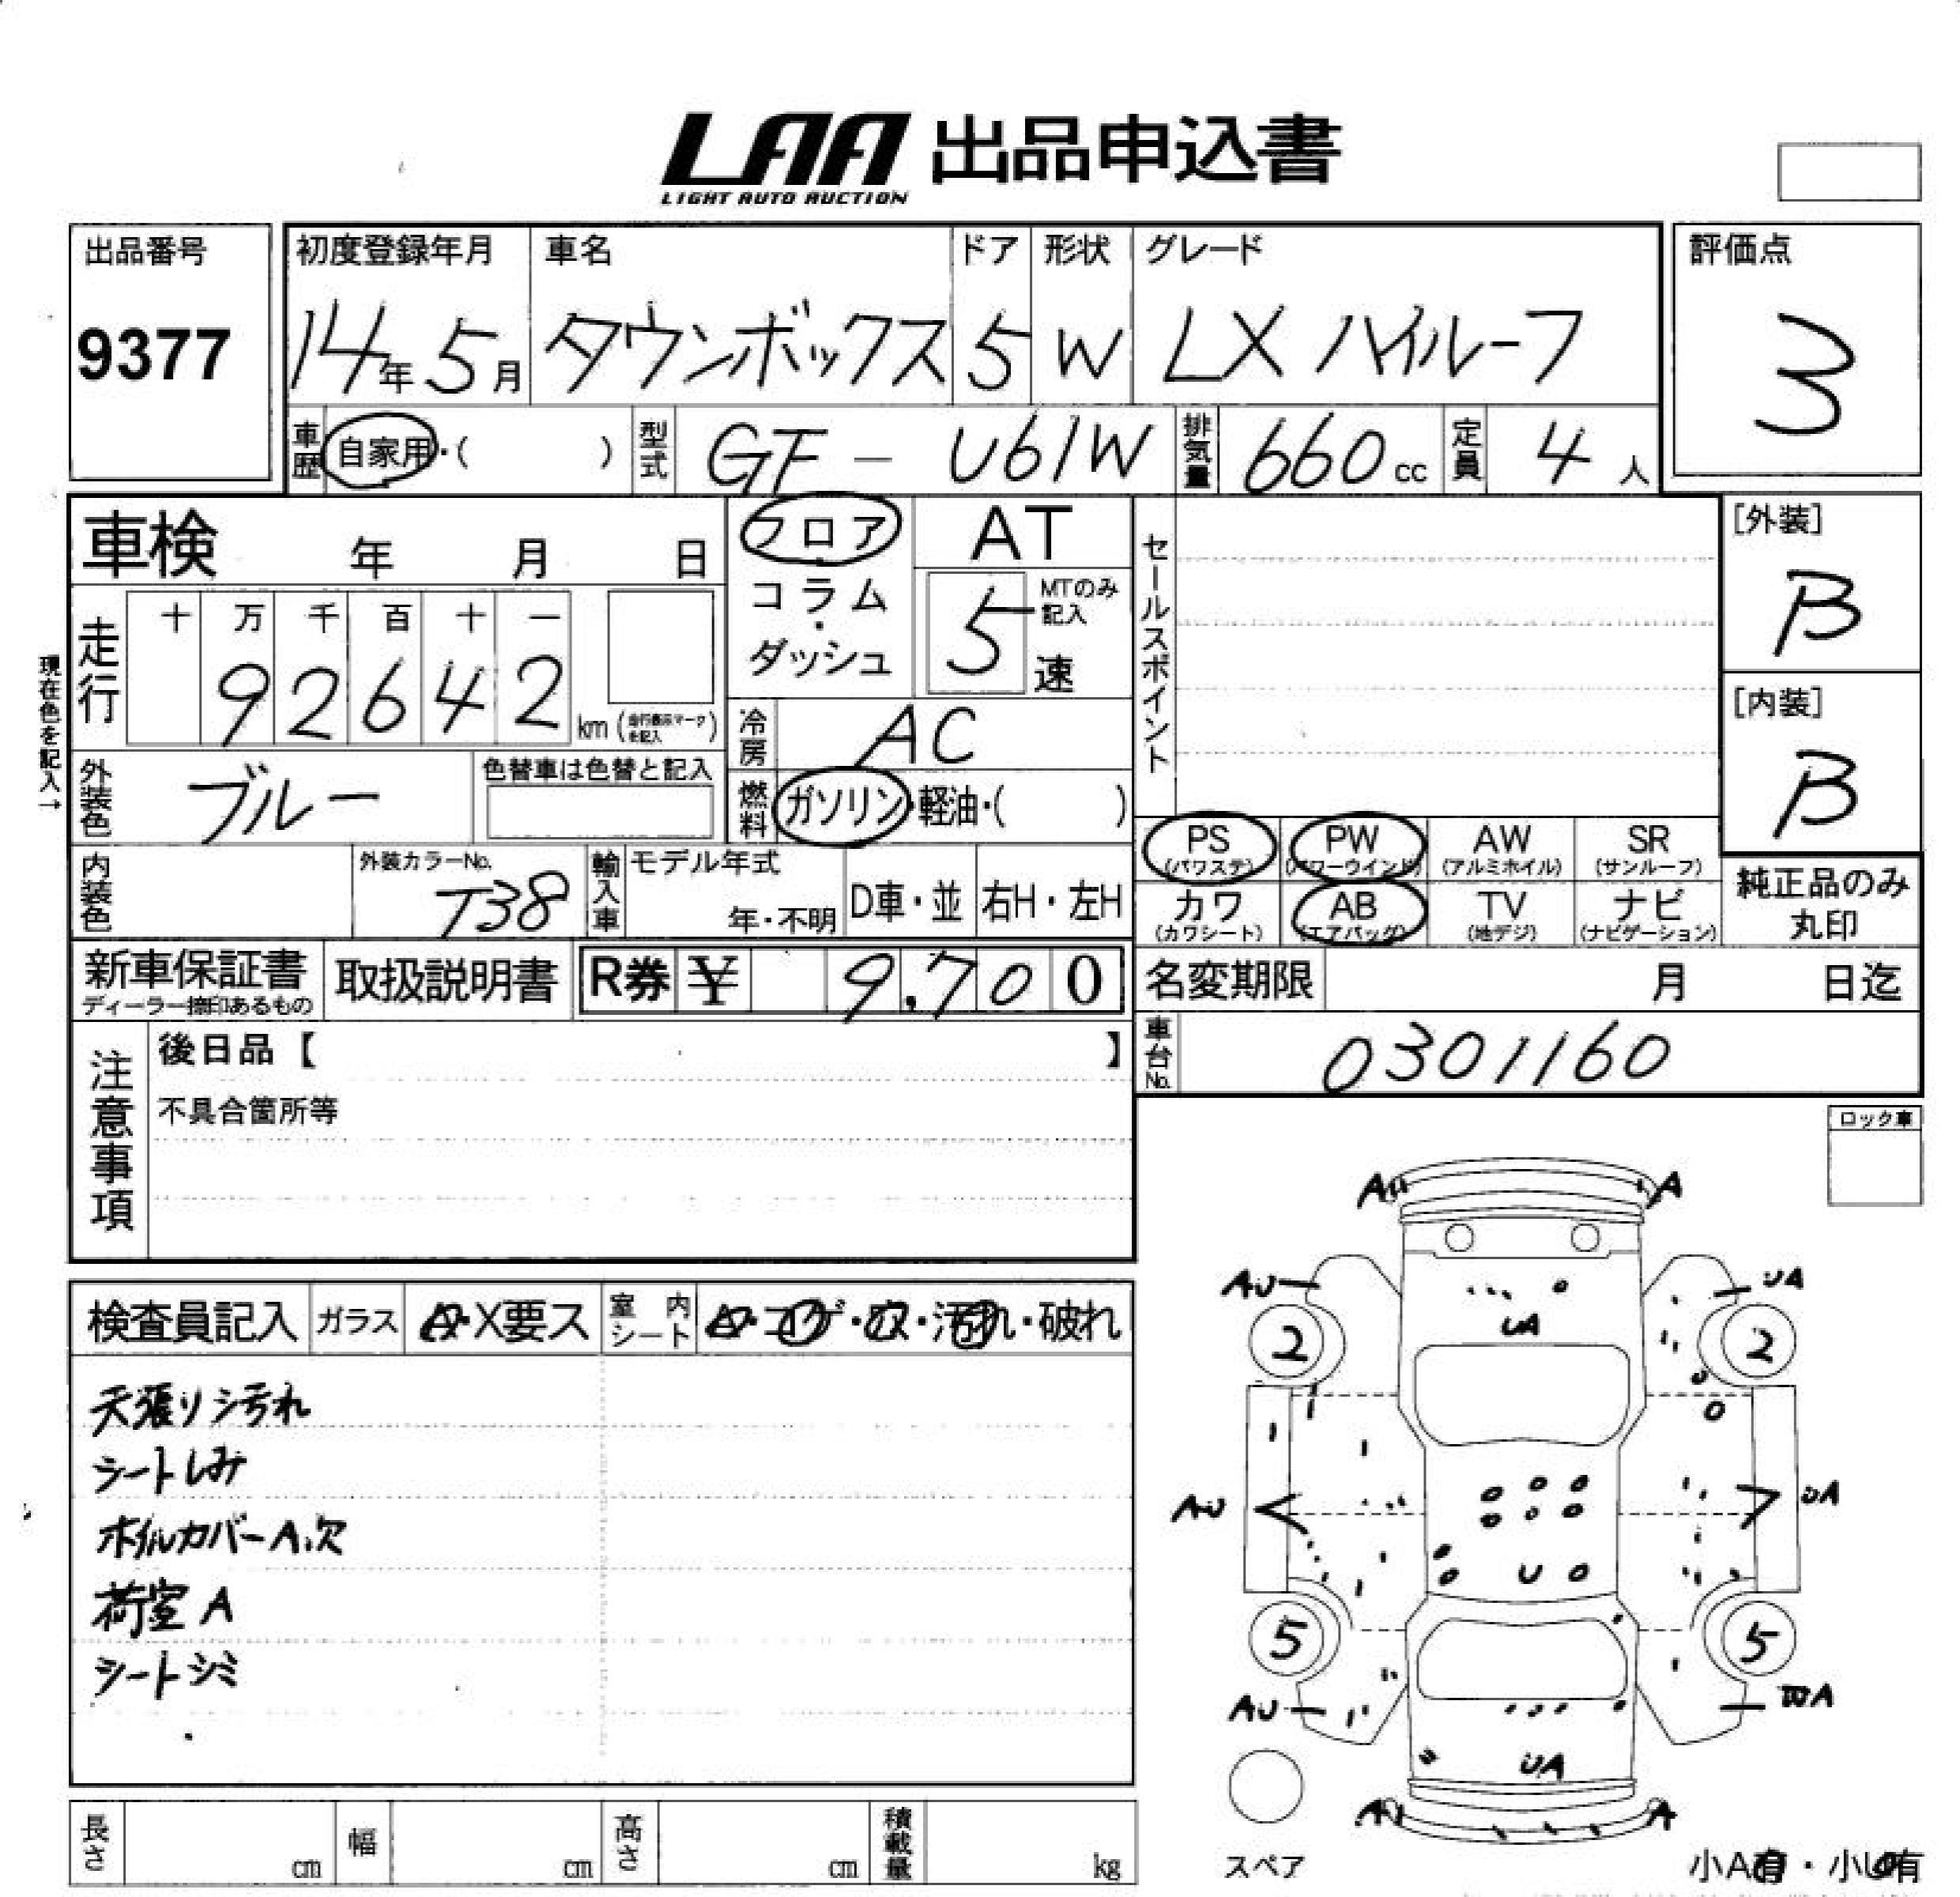 LAA 出品申込書
LIGHT AUTO AUCTION
出品番号
9377
初度登録年月
14年 5月
車名
タウンボックス
ドア
5
形状
W
グレード
LX ハイルーフ
評価点
3
車歴 自家用・( )
型式 GF - U61W
排気量 660 cc
定員 4 人
車検 年 月 日
フロア・コラム・ダッシュ
AT
5 速
MTのみ記入
セールスポイント
[外装]
B
[内装]
B
現在色を記入→
走行
十 万 千 百 十 一
9 2 6 4 2 km
冷房 AC
燃料 ガソリン・軽油・( )
外装色 ブルー
色替車は色替と記入
内装色
外装カラーNo.
T38
輸入車
モデル年式
年・不明
D車・並
右H・左H
PS (パワステ)
PW (パワーウインド)
AW (アルミホイル)
SR (サンルーフ)
カワ (カワシート)
AB (エアバッグ)
TV (地デジ)
ナビ (ナビゲーション)
純正品のみ
丸印
新車保証書
ディーラー捺印あるもの
取扱説明書
R券 ¥ 9,700
名変期限 月 日迄
車台No. 0301160
注意事項
後日品【 】
不具合箇所等
ロック車
検査員記入
ガラス A・X要ス
室内シート A・コゲ・穴・汚れ・破れ
天張りシ汚れ
シートしみ
ホイルカバーA、欠
荷室 A
シートシミ
AU A
AU UA
UA
2 2
AU UA
U
5 5
AU
UA
A A
スペア
小A有・小U有
長さ cm
幅 cm
高さ cm
積載量 kg